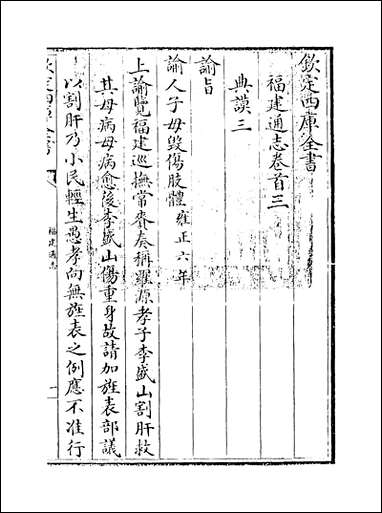 欽定四庫全書
福建通志卷首三
典謨三
諭旨
諭人子毋毀傷肢體雍正六年
上諭覽福建巡撫常賚奏稱羅源孝子李盛山割肝救
其母病母病愈後李盛山傷重身故請加旌表部議
以割肝乃小民輕生愚孝向無旌表之例應不准行
欽定四庫全書
福建通志
一